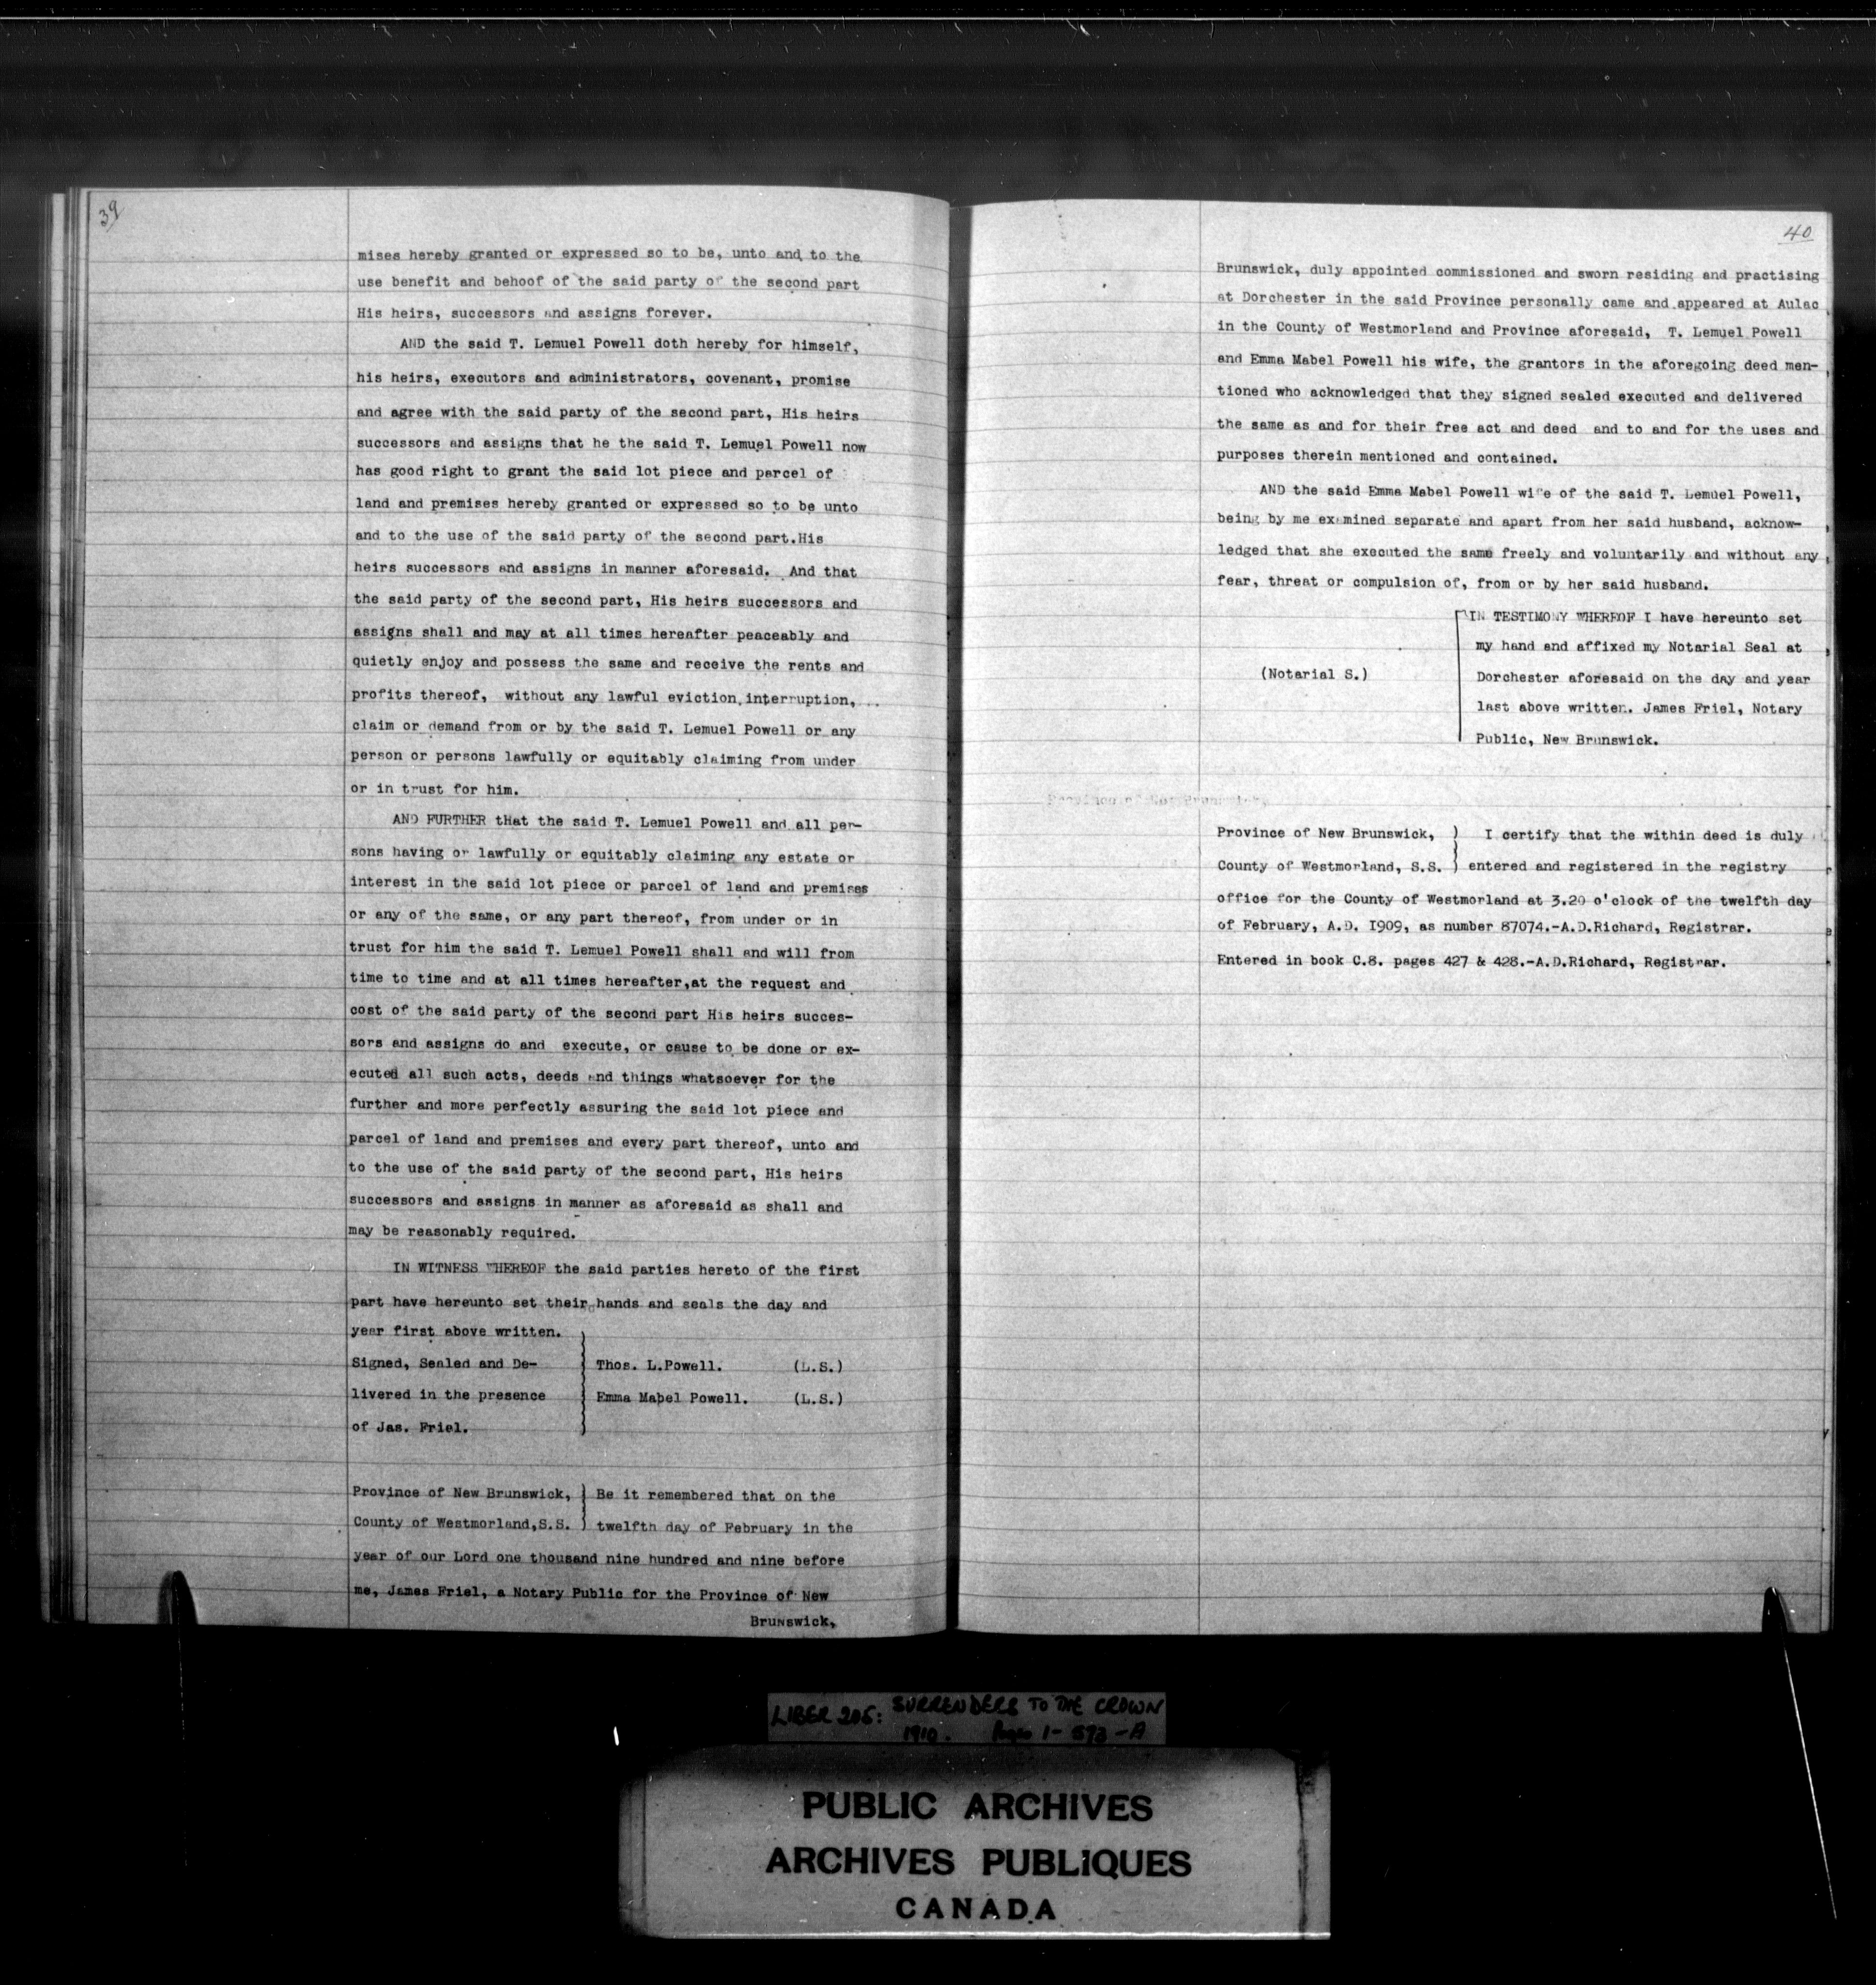 39
mises hereby granted or expressed so to be, unto and to the
use benefit and behoof of the said party of the second part
His heirs, successors and assigns forever.
AND the said T. Lemuel Powell doth hereby for himself,
his heirs, executors and administrators, covenant, promise
and agree with the said party of the second part, His heirs
successors and assigns that he the said T. Lemuel Powell now
has good right to grant the said lot piece and parcel of
land and premises hereby granted or expressed so to be unto
and to the use of the said party of the second part.His
heirs successors and assigns in manner aforesaid. And that
the said party of the second part, His heirs successors and
assigns shall and may at all times hereafter peaceably and
quietly enjoy and possess the same and receive the rents and
profits thereof, without any lawful eviction,interruption,
claim or demand from or by the said T. Lemuel Powell or any
person or persons lawfully or equitably claiming from under
or in trust for him.
AND FURTHER tHat the said T. Lemuel Powell and all per-
sons having or lawfully or equitably claiming any estate or
interest in the said lot piece or parcel of land and premises
or any of the same, or any part thereof, from under or in
trust for him the said T. Lemuel Powell shall and will from
time to time and at all times hereafter,at the request and
cost of the said party of the second part His heirs succes-
sors and assigns do and execute, or cause to be done or ex-
ecuted all such acts, deeds and things whatsoever for the
further and more perfectly assuring the said lot piece and
parcel of land and premises and every part thereof, unto and
to the use of the said party of the second part, His heirs
successors and assigns in manner as aforesaid as shall and
may be reasonably required.
IN WITNESS WHEREOF the said parties hereto of the first
part have hereunto set their hands and seals the day and
year first above written.
Signed, Sealed and De- Thos. L.Powell. (L.S.)
livered in the presence Emma Mabel Powell. (L.S.)
of Jas. Friel.
Province of New Brunswick, ) Be it remembered that on the
County of Westmorland,S.S. ) twelfth day of February in the
year of our Lord one thousand nine hundred and nine before
me, James Friel, a Notary Public for the Province of New
Brunswick,
40
Brunswick, duly appointed commissioned and sworn residing and practising
at Dorchester in the said Province personally came and appeared at Aulac
in the County of Westmorland and Province aforesaid, T. Lemuel Powell
and Emma Mabel Powell his wife, the grantors in the aforegoing deed men-
tioned who acknowledged that they signed sealed executed and delivered
the same as and for their free act and deed and to and for the uses and
purposes therein mentioned and contained.
AND the said Emma Mabel Powell wife of the said T. Lemuel Powell,
being by me examined separate and apart from her said husband, acknow-
ledged that she executed the same freely and voluntarily and without any
fear, threat or compulsion of, from or by her said husband.
IN TESTIMONY WHEREOF I have hereunto set
my hand and affixed my Notarial Seal at
(Notarial S.) Dorchester aforesaid on the day and year
last above written. James Friel, Notary
Public, New Brunswick.
Province of New Brunswick, ) I certify that the within deed is duly
County of Westmorland, S.S. ) entered and registered in the registry
office for the County of Westmorland at 3.20 o'clock of the twelfth day
of February, A.D. I909, as number 87074.-A.D.Richard, Registrar.
Entered in book C.8. pages 427 & 428.-A.D.Richard, Registrar.
LIBER 205: SURRENDERS TO THE CROWN
1910. Pages 1-
PUBLIC ARCHIVES
ARCHIVES PUBLIQUES
CANADA